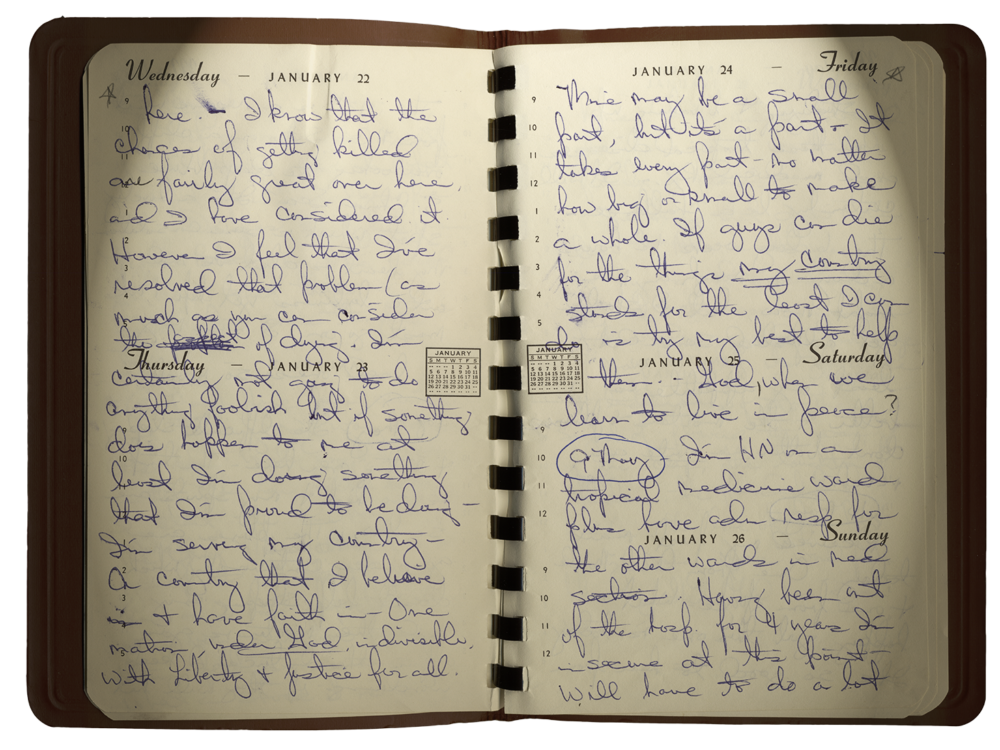 Wednesday — JANUARY 22
9
here. – I know that the
10
Chances of getting killed
11
are fairly great over here,
and I have considered it.
2
However I feel that I've
3
resolved that problem (as
4
much as you can consider
the of dying. I'm
Thursday — JANUARY 23
certainly not going to do
anything foolish but if something
does happen to me at
10
least I'm doing something
that I'm proud to be doing –
I'm serving my country –
2
A country that I believe
3
in + have faith in – One
nation, under God, indivisible,
with Liberty & Justice for all.
JANUARY
S M T W T F S
1 2 3 4
5 6 7 8 9 10 11
12 13 14 15 16 17 18
19 20 21 22 23 24 25
26 27 28 29 30 31
JANUARY 24 — Friday
9
Mine may be a small
10
part, but it's a part – It
11
takes every part – no matter
12
how big or small to make
1
a whole. If guys can die
2
3
for the things my country
4
stands for the least I can
5
do is by my best to help
JANUARY 25 — Saturday
them. – God, when will we
learn to live in peace?
9
10
9 Thurs – I'm HN on a
11
tropical medicine ward
12
plus have adm. resp. for
JANUARY 26 — Sunday
9
the other wards in med
10
section. Having been out
11
of the hosp. for 4 years I'm
12
insecure at this point –
will have to do a lot
JANUARY
S M T W T F S
1 2 3 4
5 6 7 8 9 10 11
12 13 14 15 16 17 18
19 20 21 22 23 24 25
26 27 28 29 30 31